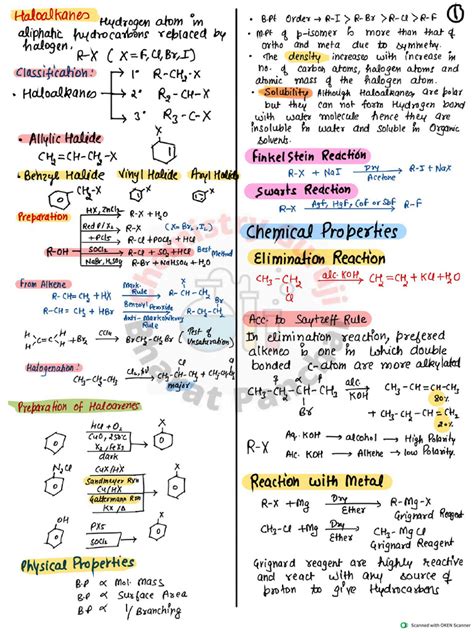 Haloalkanes Hydrogen atom in
aliphatic hydrocarbons replaced by
halogen.
R-X (X=F, Cl, Br, I)
Classification:
Haloalkanes
1° R-CH₂-X
2° R₂-CH-X
3° R₃-C-X
• Allylic Halide
CH₂=CH-CH₂-X
X
• Benzyl Halide Vinyl Halide Aryl Halide
CH₂-X
X
X
Preparation
R-OH
HX, ZnCl₂ R-X + H₂O
Red P/X₂ R-X (X=Br₂, I₂)
+PCl₅ R-Cl + POCl₃ + HCl
SOCl₂ R-Cl + SO₂ + HCl Best Method
NaBr, H₂SO₄ R-Br + NaHSO₄ + H₂O
From Alkene
R-CH=CH₂ + HX Mark. Rule R-CH-CH₃
X
R-CH=CH₂ + HBr Benzoyl Peroxide R-CH₂-CH₂-Br
Anti-Markownikov Rule
H
H
C=C
H
H
+ Br₂ CCl₄ BrCH₂-CH₂-Br (Test of Unsaturation)
Halogenation:
CH₃-CH₂-CH₃
major
Preparation of Haloarenes
HCl + O₂
CuO, 25°C
X₂, FeX₃
dark
X
N₂Cl
CuX/HX
Sandmeyer Rxn
Cu/HX
Gattermann Rxn
KX/Δ
X
OH
PX₅
SOCl₂
X
Physical Properties
B.P ∝ Mol. Mass
B.P ∝ Surface Area
B.P ∝ 1/Branching
1
• B.Pt Order → R-I > R-Br > R-Cl > R-F
• M.P of p-isomer is more than that of
ortho and meta due to symmetry.
• The density increases with increase in
no. of carbon atoms, halogen atoms and
atomic mass of the halogen atom.
• Solubility Although Haloalkanes are polar
but they can not form Hydrogen bond
with water molecule hence they are
insoluble in water and soluble in Organic
solvents.
Finkelstein Reaction
R-X + NaI Dry Acetone R-I + NaX
Swarts Reaction
R-X AgF, HgF, CoF or SbF R-F
Chemical Properties
Elimination Reaction
CH₃-CH₂ alc. KOH CH₂=CH₂ + KCl + H₂O
Cl
Acc. to Saytzeff Rule
In elimination reaction, prefered
alkenes is one in which double
bonded C-atom are more alkylated
CH₃-CH₂-CH-CH₃ alc KOH
Br
CH₃-CH=CH-CH₃
80%
+ CH₃-CH₂-CH=CH₂
20%
R-X
Aq. KOH → alcohol → High Polarity
Alc. KOH → Alkene → low Polarity.
Reaction with Metal
R-X + Mg Dry Ether R-Mg-X
Grignard Reagent
CH₃-Cl + Mg Dry Ether CH₃-MgCl
Grignard Reagent
Grignard reagent are highly reactive
and react with any source of
proton to give Hydrocarbons
Scanned with OKEN Scanner